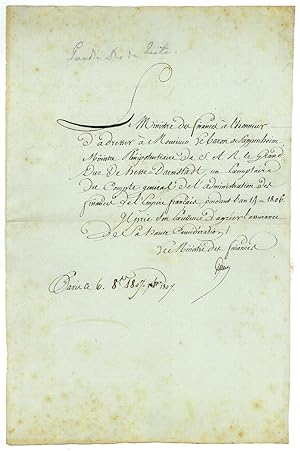 Gaudin Duc de Gaete.
Le Ministre des finances a l'honneur
d'adresser à Monsieur le baron de Pappenheim
Ministre Plénipotentiaire de S. A. R. le Grand
Duc de Hesse-Darmstadt, un Exemplaire
du Compte general de l'administration des
finances de l'Empire français, pendant l'an 14 = 1806.
Il prie son Excellence d'agréer l'assurance
de sa haute Consideration.
Le Ministre des finances
Paris ce 6. 8bre 1807.